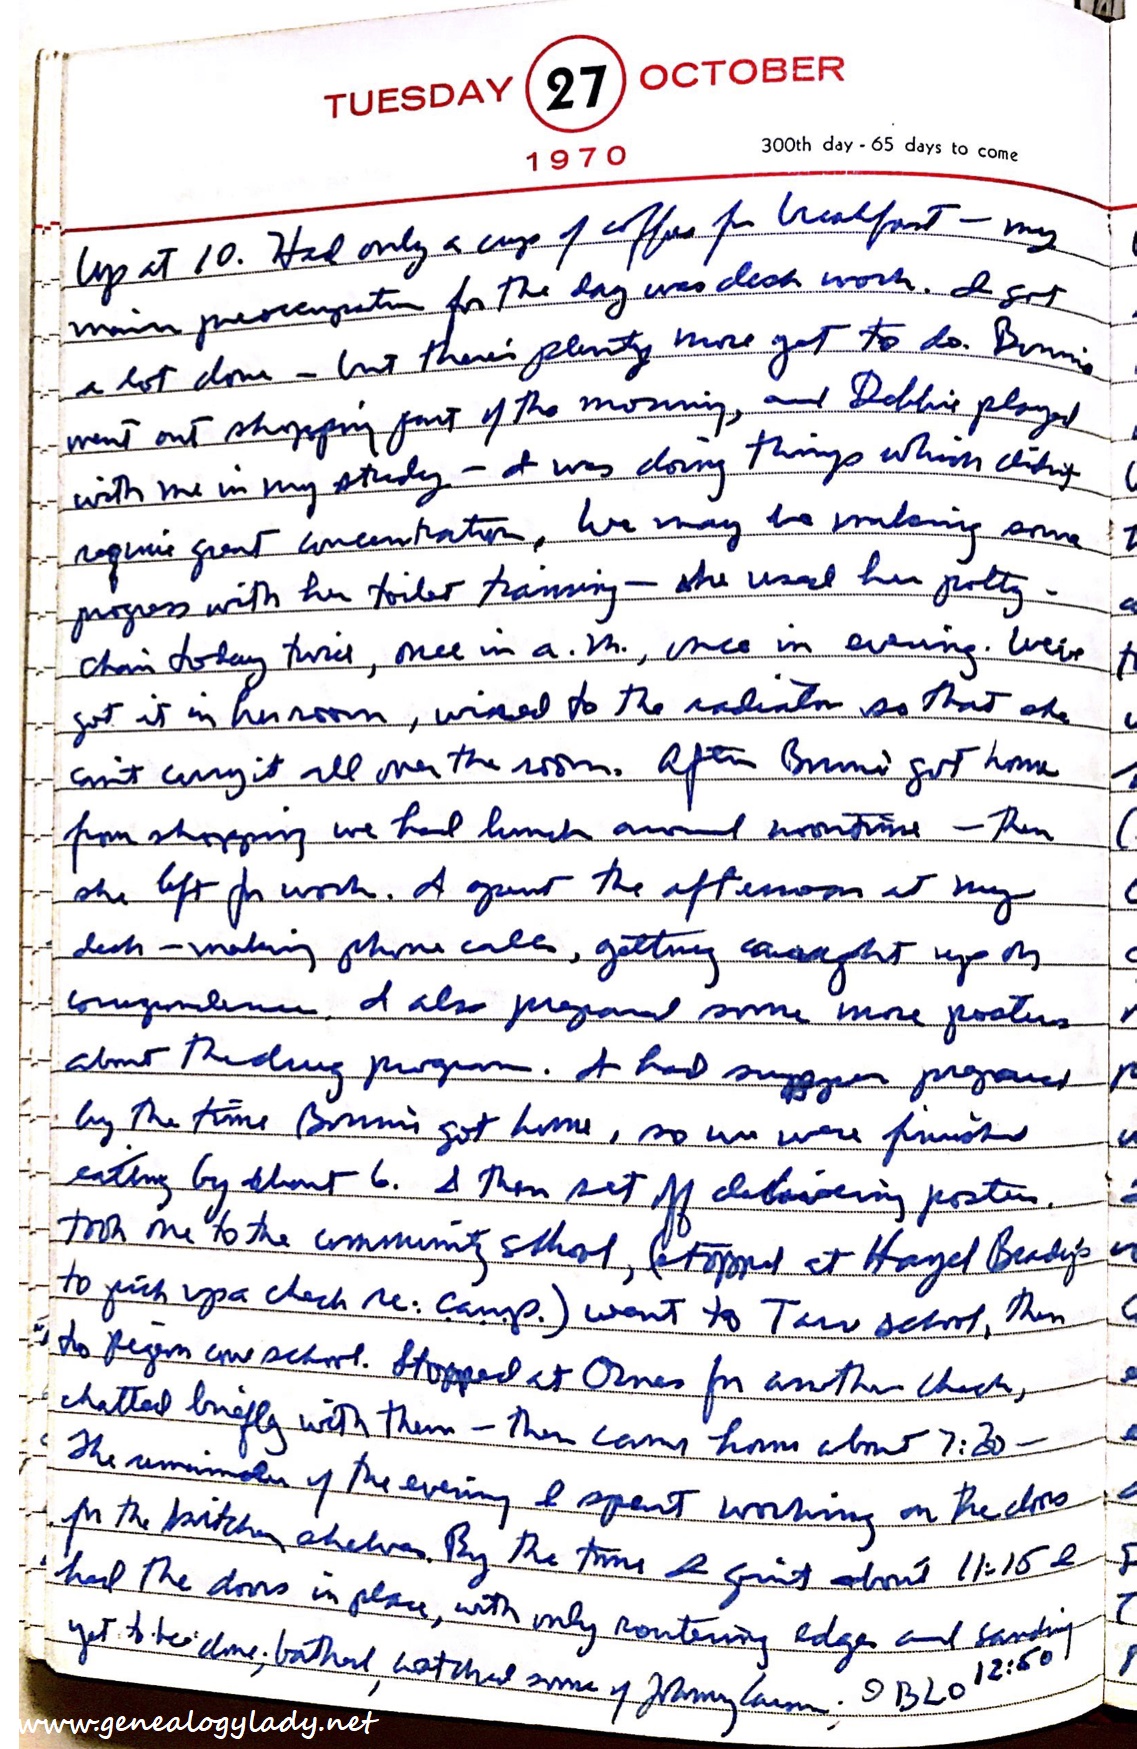 TUESDAY 27 OCTOBER
1970
300th day - 65 days to come
Up at 10. Had only a cup of coffee for breakfast – my
main preoccupation for the day was desk work. I got
a lot done – but there's plenty more yet to do. Bonnie
went out shopping part of the morning, and Debbie played
with me in my study – I was doing things which didn't
require great concentration. We may be making some
progress with her toilet training – she used her potty-
chair today twice, once in a.m., once in evening. We've
got it in her room, wired to the radiator so that she
can't carry it all over the room. After Bonnie got home
from shopping we had lunch around noontime – then
she left for work. I spent the afternoon at my
desk – making phone calls, getting caught up on
correspondence. I also prepared some more posters
about the drug program. I had supper prepared
by the time Bonnie got home, so we were finished
eating by about 6. I then set off delivering posters.
took one to the community school, (stopped at Hazel Brady's
to pick up a check re: camp.) went to Tarr school, then
to Pigeon Cove school. Stopped at Ornes for another check,
chatted briefly with them – then came home about 7:30 –
The remainder of the evening I spent working on the doors
for the kitchen shelves. By the time I quit about 11:15 I
had the doors in place, with only routering edges and sanding
yet to be done; bathed, watched some of Johnny Carson; BLO 12:50
www.genealogylady.net